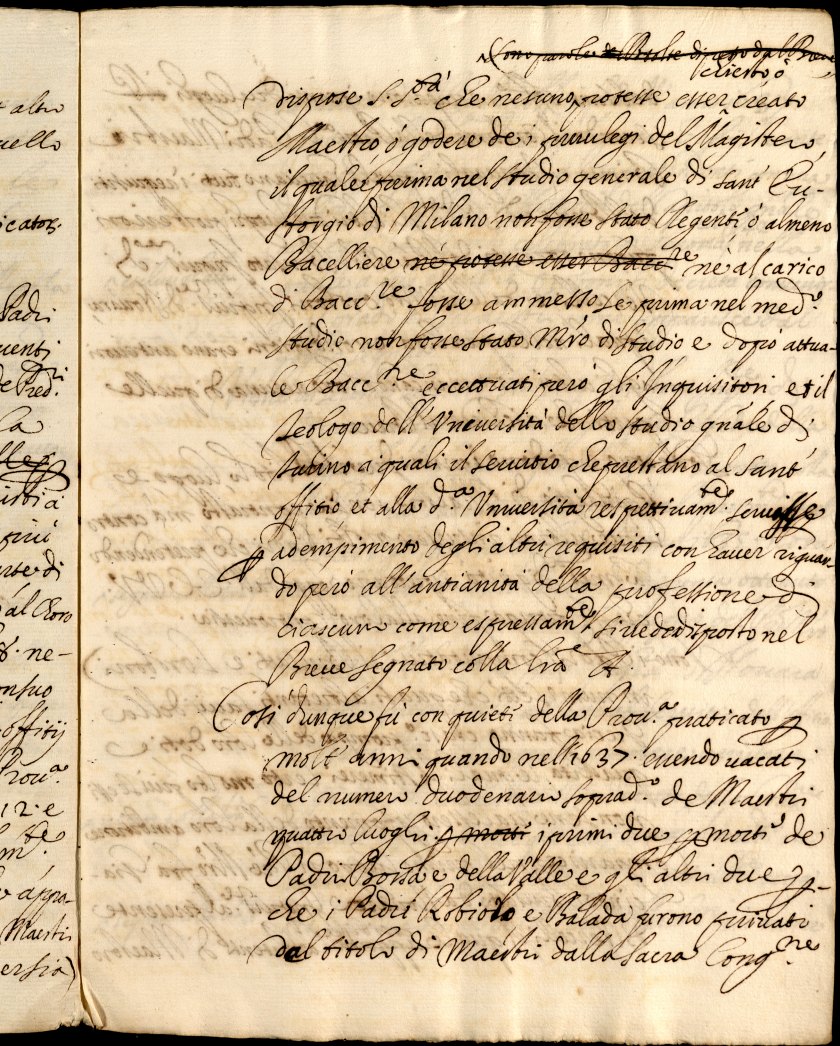 t altro
uello
icator.
Padri
uenti
de Pred.ri
la
più
arte di
al Choro
8. ne-
offitij
Prou.a
12. e
m.te
appro-
Maestri
ersia)
Sono parole
dispose S. S.tà che nesuno potesse esser creato
Maestro ó godere de i priuilegi del Magistero,
il quale prima nel studio generale di sant' Eu-
storgio di Milano non fosse stato Regente ó almeno
Bacelliere né potesse esser Bacc.re né al carico
di Bacc.re fosse ammesso se prima nel med.o
studio non fosse stato Mro di studio e dopò attua-
le Bacc.re eccettuati peró gli Inquisitori et il
Teologo dell' Vniuersità dello studio gnãle di
Turino a quali il seruitio che prestano al sant'
offitio et alla d.a Vniuersità respettiuam.te
adempimento degli altri requisiti con hauer riguar-
do peró all' antianità della professione di
ciascuno come espressam.te si uede disposto nel
Breue segnato colla lrã A.
Cosi dunque fù con quiete della Prou.a praticato p
molti anni quando nell' 1637. euendo uacati
del numero duodenario soprad.o de Maestri
quattro luoghi. p morte i primi due p morte de
Padri Bossa e della Valle e gli altri due p-
che i Padri Robiolo e Balada furono priuati
dal titolo di Maestri dalla Sacra Cong.ne